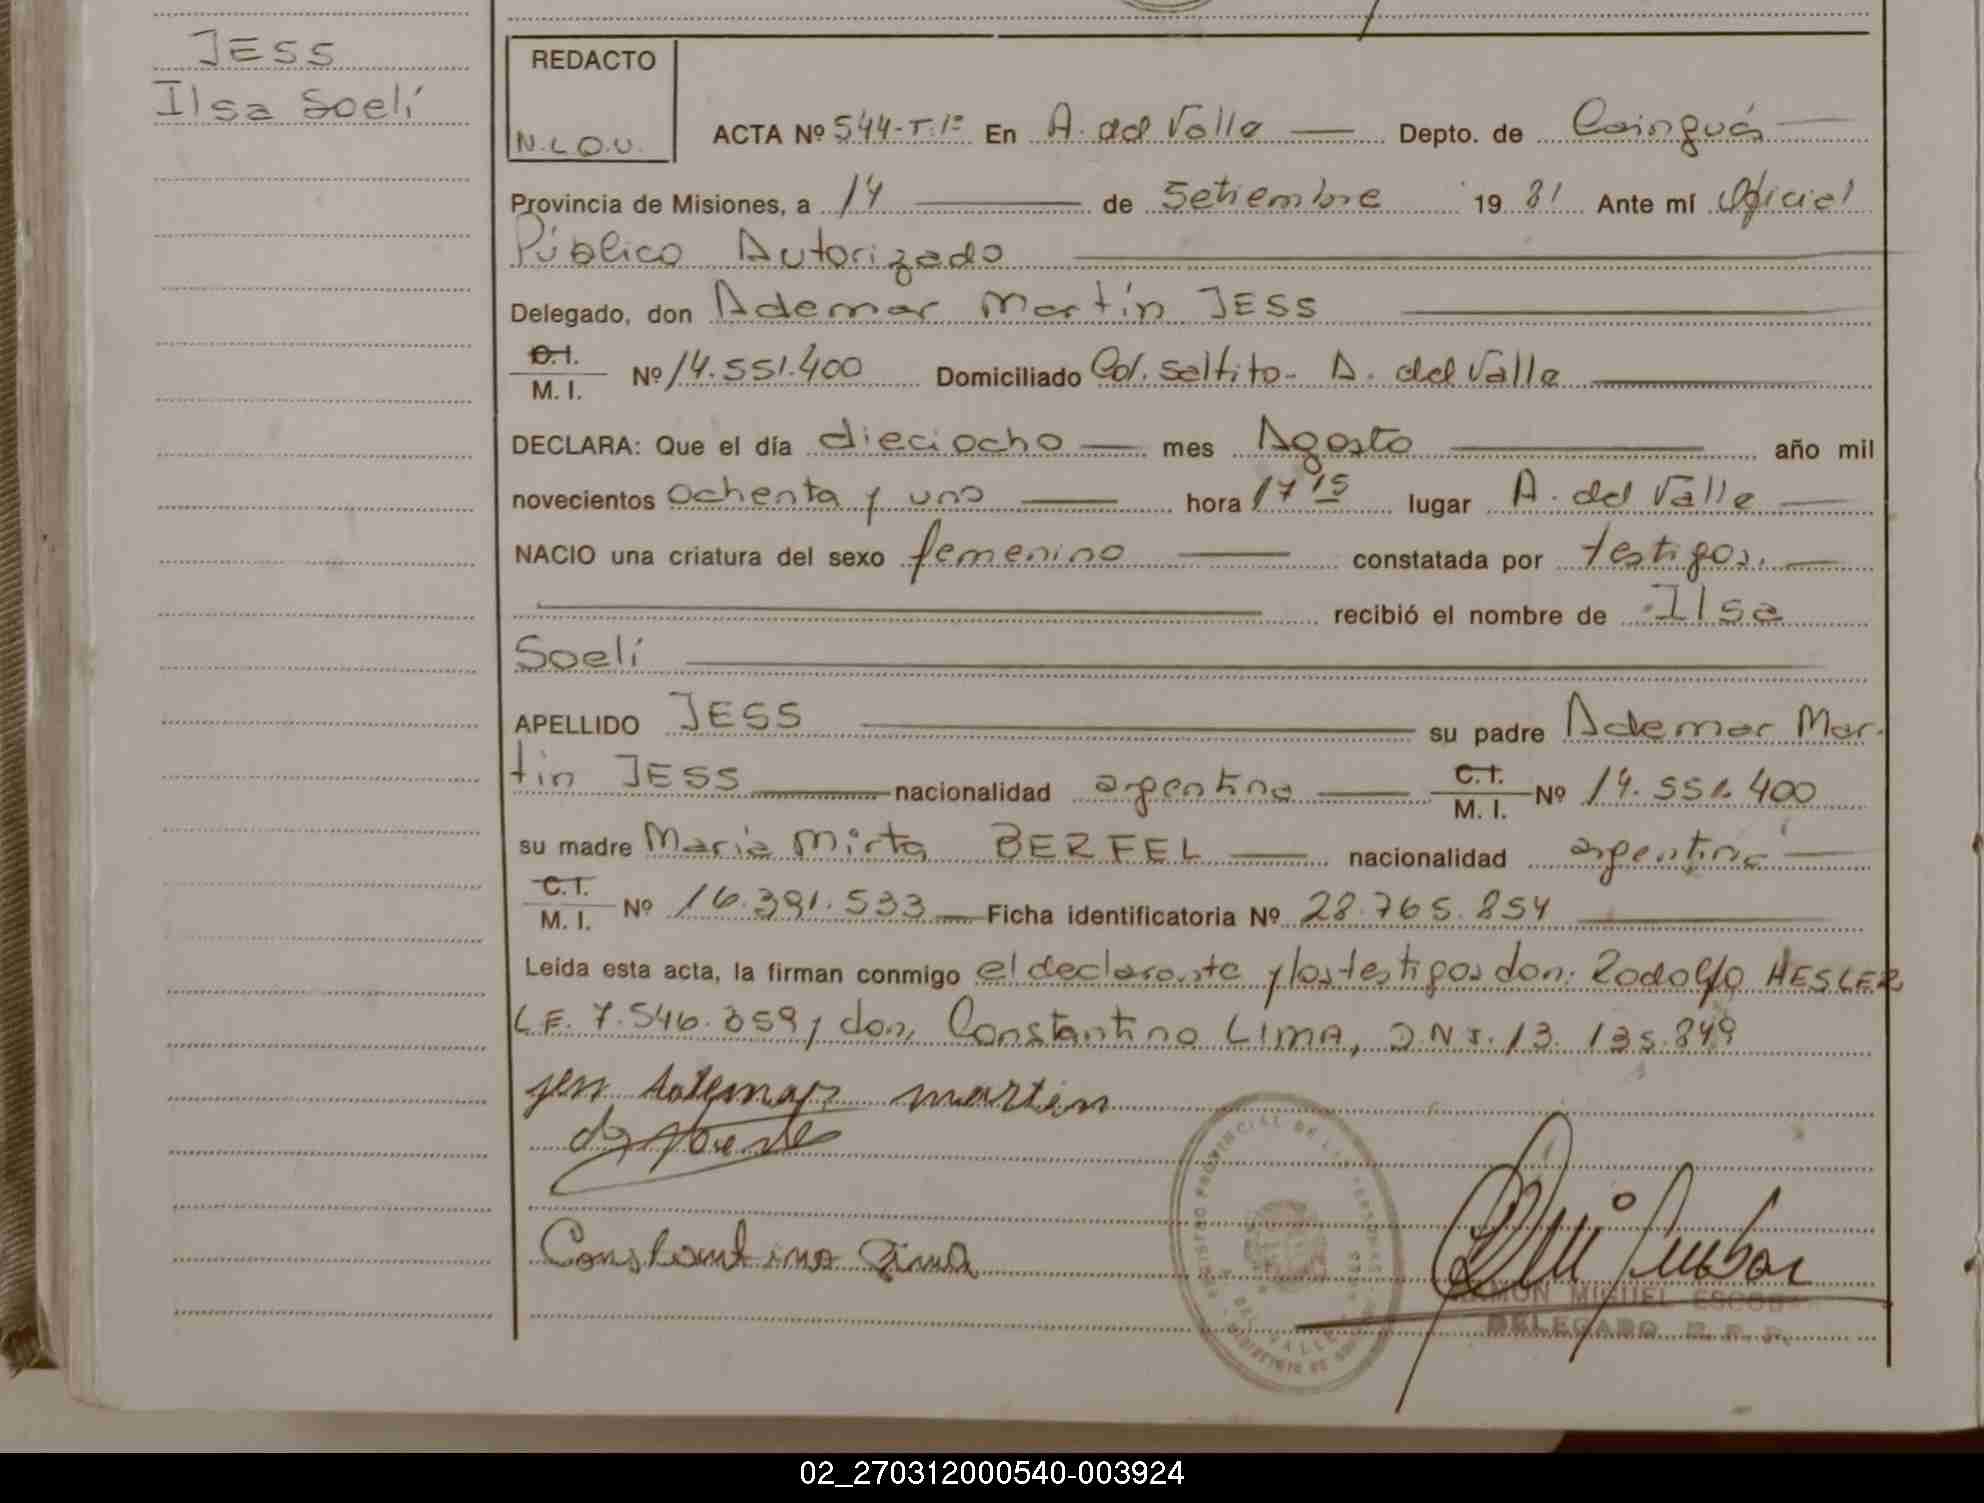 JESS
Ilsa Soelí
REDACTO
N.L.O.U.
ACTA Nº 544-T.1º En A. del Valle Depto. de Cainguás
Provincia de Misiones, a 14 de Setiembre 19 81 Ante mí Oficial
Público Autorizado
Delegado, don Ademar Martín JESS
D.I.
M. I. Nº 14.551.400 Domiciliado Col. Saltito- A. del Valle
DECLARA: Que el día dieciocho mes Agosto año mil
novecientos ochenta y uno hora 17 15 lugar A. del Valle
NACIO una criatura del sexo femenino constatada por testigos.
recibió el nombre de Ilsa
Soelí
APELLIDO JESS su padre Ademar Mar-
tin JESS nacionalidad argentina C.I. M. I. Nº 14.551.400
su madre María Mirta BERFEL nacionalidad argentina
C.I.
M. I. Nº 16.391.533 Ficha identificatoria Nº 28.765.854
Leída esta acta, la firman conmigo el declarante y los testigos don: Rodolfo HESLER
L.E. 7.546.859 y don, Constantino LIMA, D.N.I. 13.135.849
Jess Ademar martin
Constantino Lima
REGISTRO PROVINCIAL DE LAS PERSONAS
A. DEL VALLE
RAMON MIGUEL ESCOBAR
DELEGADO R. P. P.
02_270312000540-003924